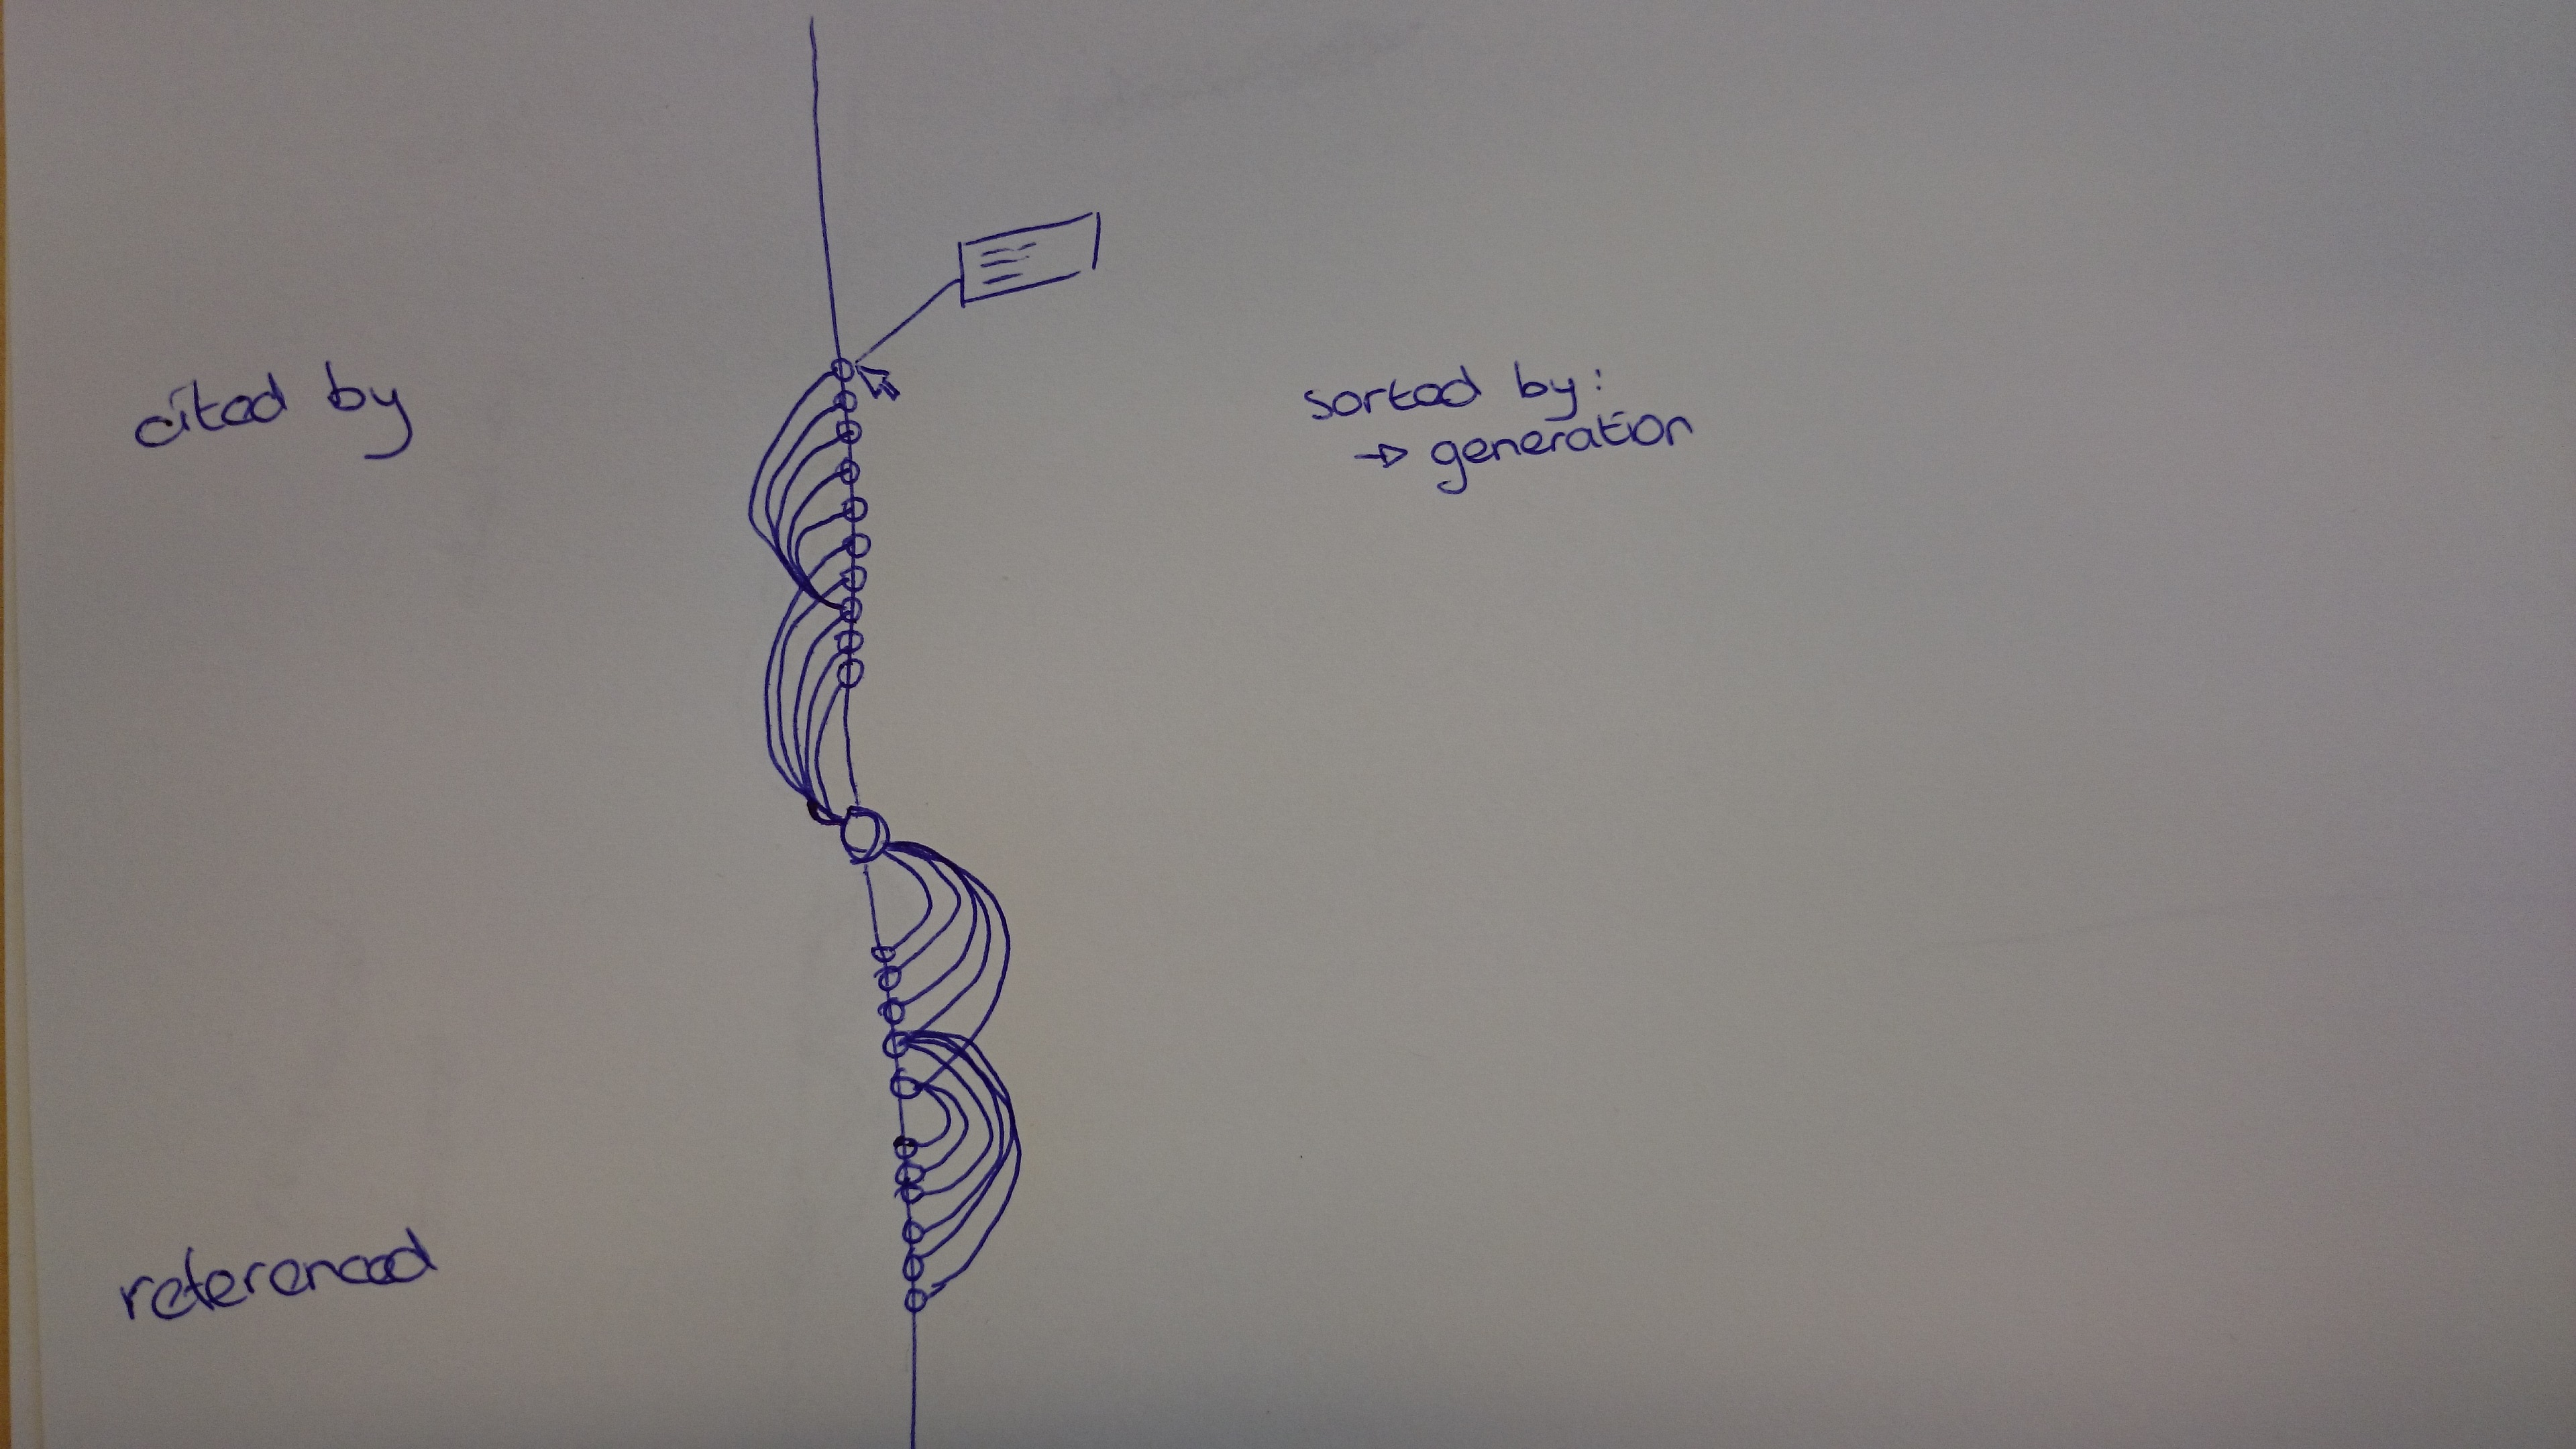 cited by
sorted by:
→ generation
referenced